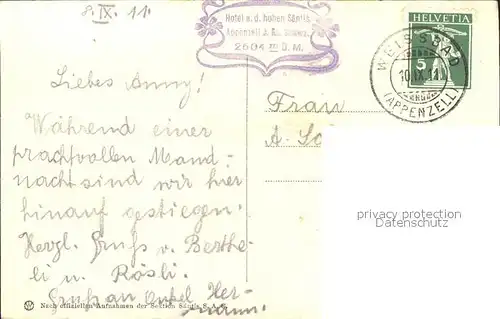 8. IX. 11.
Hotel a. d. hohen Säntis
Appenzell J. Rh. Schweiz
2504 m ü. M.
HELVETIA
5
WEISSBAD
10.IX.11
(APPENZELL)
Liebes Anny!
Während einer
prachtvollen Mond-
nacht sind wir hier
hinauf gestiegen.
Herzl. Gruss v. Berthe-
li u. Rösli.
Gruss an Onkel Her-
mann.
Frau
privacy protection
watermark
Nach offiziellen Aufnahmen der Sektion Säntis S. A. C.